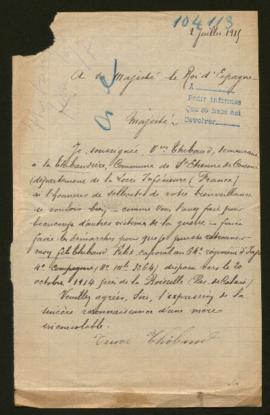 104113
2 Juillet 1915
A sa Majesté le Roi d'Espagne
A
Pedir informes
Que se hace así
Devolver
Majesté
Je soussignée Vve Thébaud, demeurant
à la Thébaudière, Commune de St Etienne de
département de la Loire Inférieure (France)
a l'honneur de solliciter de votre bienveillance
de vouloir bien, comme vous l'avez fait pour
beaucoup d'autres victimes de la guerre, faire
faire la démarche pour que je puisse retrouver
mon fils Thébaud Félix caporal au 64e régiment d'Infie
4e Compagnie (No mle 3264) disparu vers le 20
octobre 1914 près de la Boisselle (Pas de Calais)
Veuillez agréer, Sire, l'expression de la
sincère reconnaissance d'une mère
inconsolable.
Veuve Thébaud